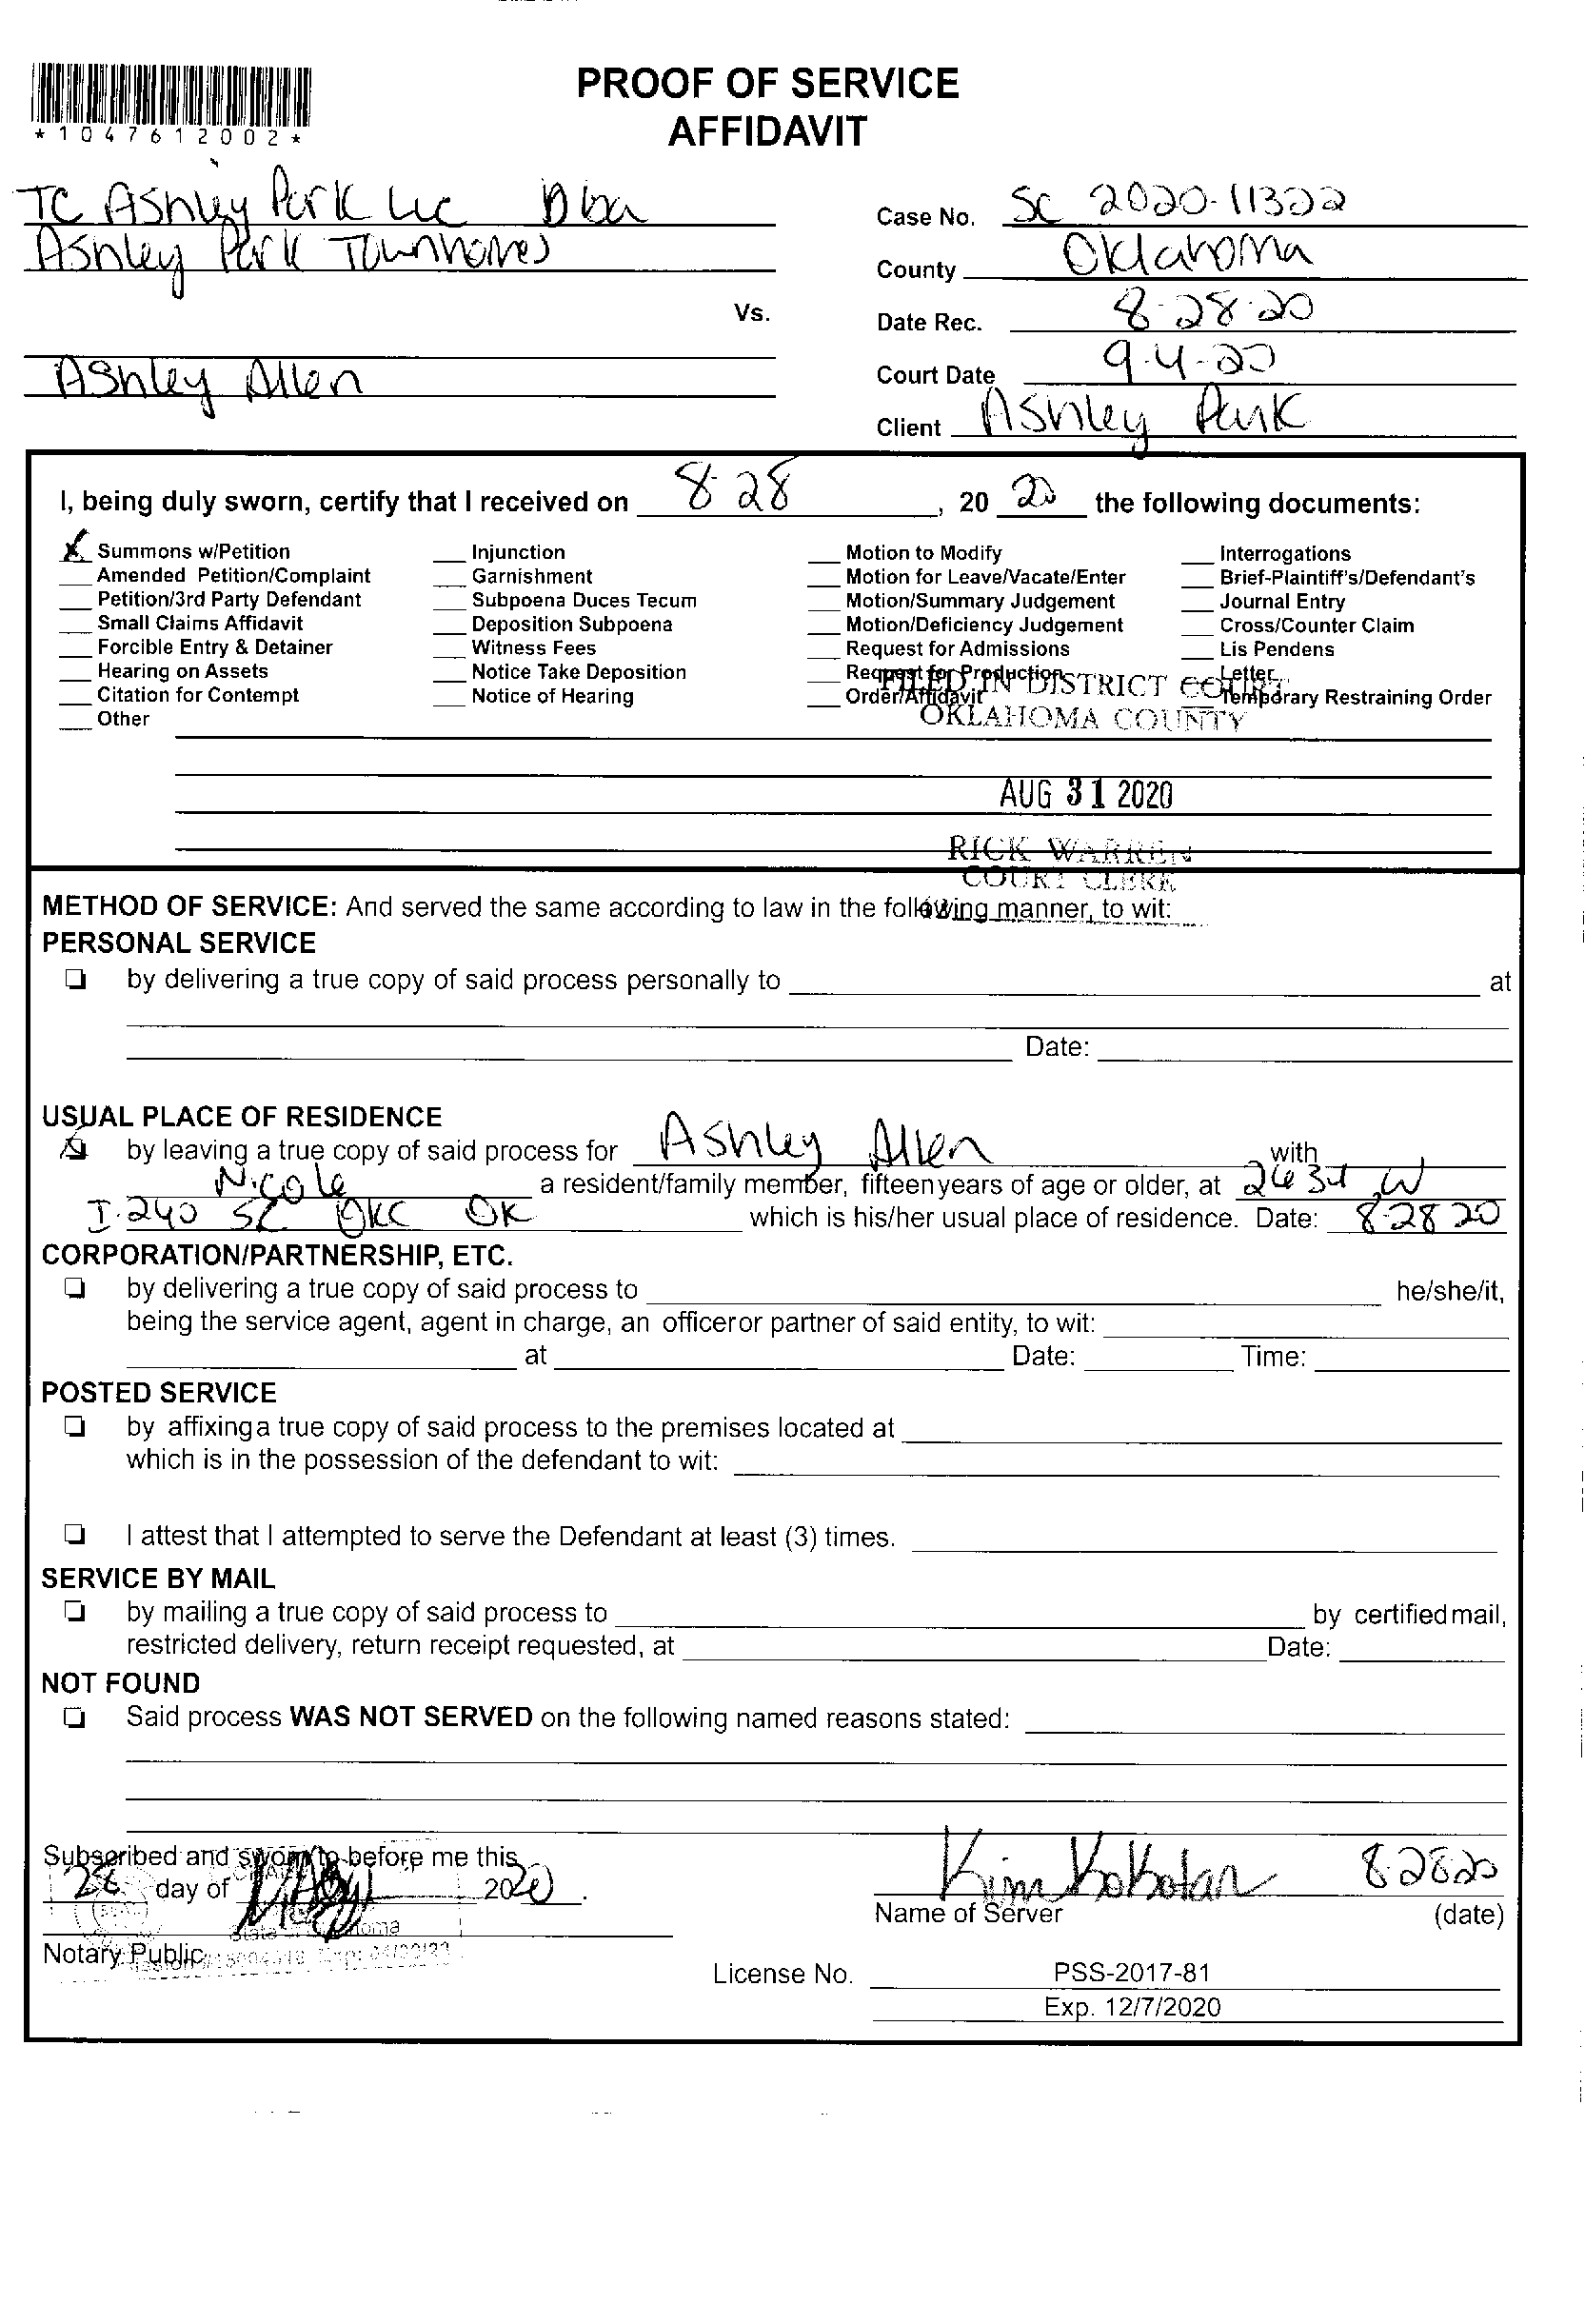 PROOF OF SERVICE
AFFIDAVIT
*1047612002*
TC Ashley Park LLC Dba
Ashley Park Townhomes
Vs.
Ashley Allen
Case No. SC 2020-11322
County Oklahoma
Date Rec. 8-28-20
Court Date 9-4-20
Client Ashley Park
I, being duly sworn, certify that I received on 8-28, 20 20 the following documents:
X Summons w/Petition
Amended Petition/Complaint
Petition/3rd Party Defendant
Small Claims Affidavit
Forcible Entry & Detainer
Hearing on Assets
Citation for Contempt
Other
Injunction
Garnishment
Subpoena Duces Tecum
Deposition Subpoena
Witness Fees
Notice Take Deposition
Notice of Hearing
Motion to Modify
Motion for Leave/Vacate/Enter
Motion/Summary Judgement
Motion/Deficiency Judgement
Request for Admissions
Request for Production
Order/Affidavit
Interrogations
Brief-Plaintiff's/Defendant's
Journal Entry
Cross/Counter Claim
Lis Pendens
Letter
Temporary Restraining Order
FILED IN DISTRICT COURT
OKLAHOMA COUNTY
AUG 31 2020
RICK WARREN
COURT CLERK
METHOD OF SERVICE: And served the same according to law in the following manner, to wit:
PERSONAL SERVICE
by delivering a true copy of said process personally to at
Date:
USUAL PLACE OF RESIDENCE
by leaving a true copy of said process for Ashley Allen with
Nicole a resident/family member, fifteen years of age or older, at 2634 W
I-240 OKC OK which is his/her usual place of residence. Date: 8-28 20
CORPORATION/PARTNERSHIP, ETC.
by delivering a true copy of said process to he/she/it,
being the service agent, agent in charge, an officer or partner of said entity, to wit:
at Date: Time:
POSTED SERVICE
by affixing a true copy of said process to the premises located at
which is in the possession of the defendant to wit:
I attest that I attempted to serve the Defendant at least (3) times.
SERVICE BY MAIL
by mailing a true copy of said process to by certified mail,
restricted delivery, return receipt requested, at Date:
NOT FOUND
Said process WAS NOT SERVED on the following named reasons stated:
Subscribed and sworn to before me this
28 day of 2020.
Notary Public
Kim Kokotan 8-28-20
Name of Server (date)
License No. PSS-2017-81
Exp. 12/7/2020